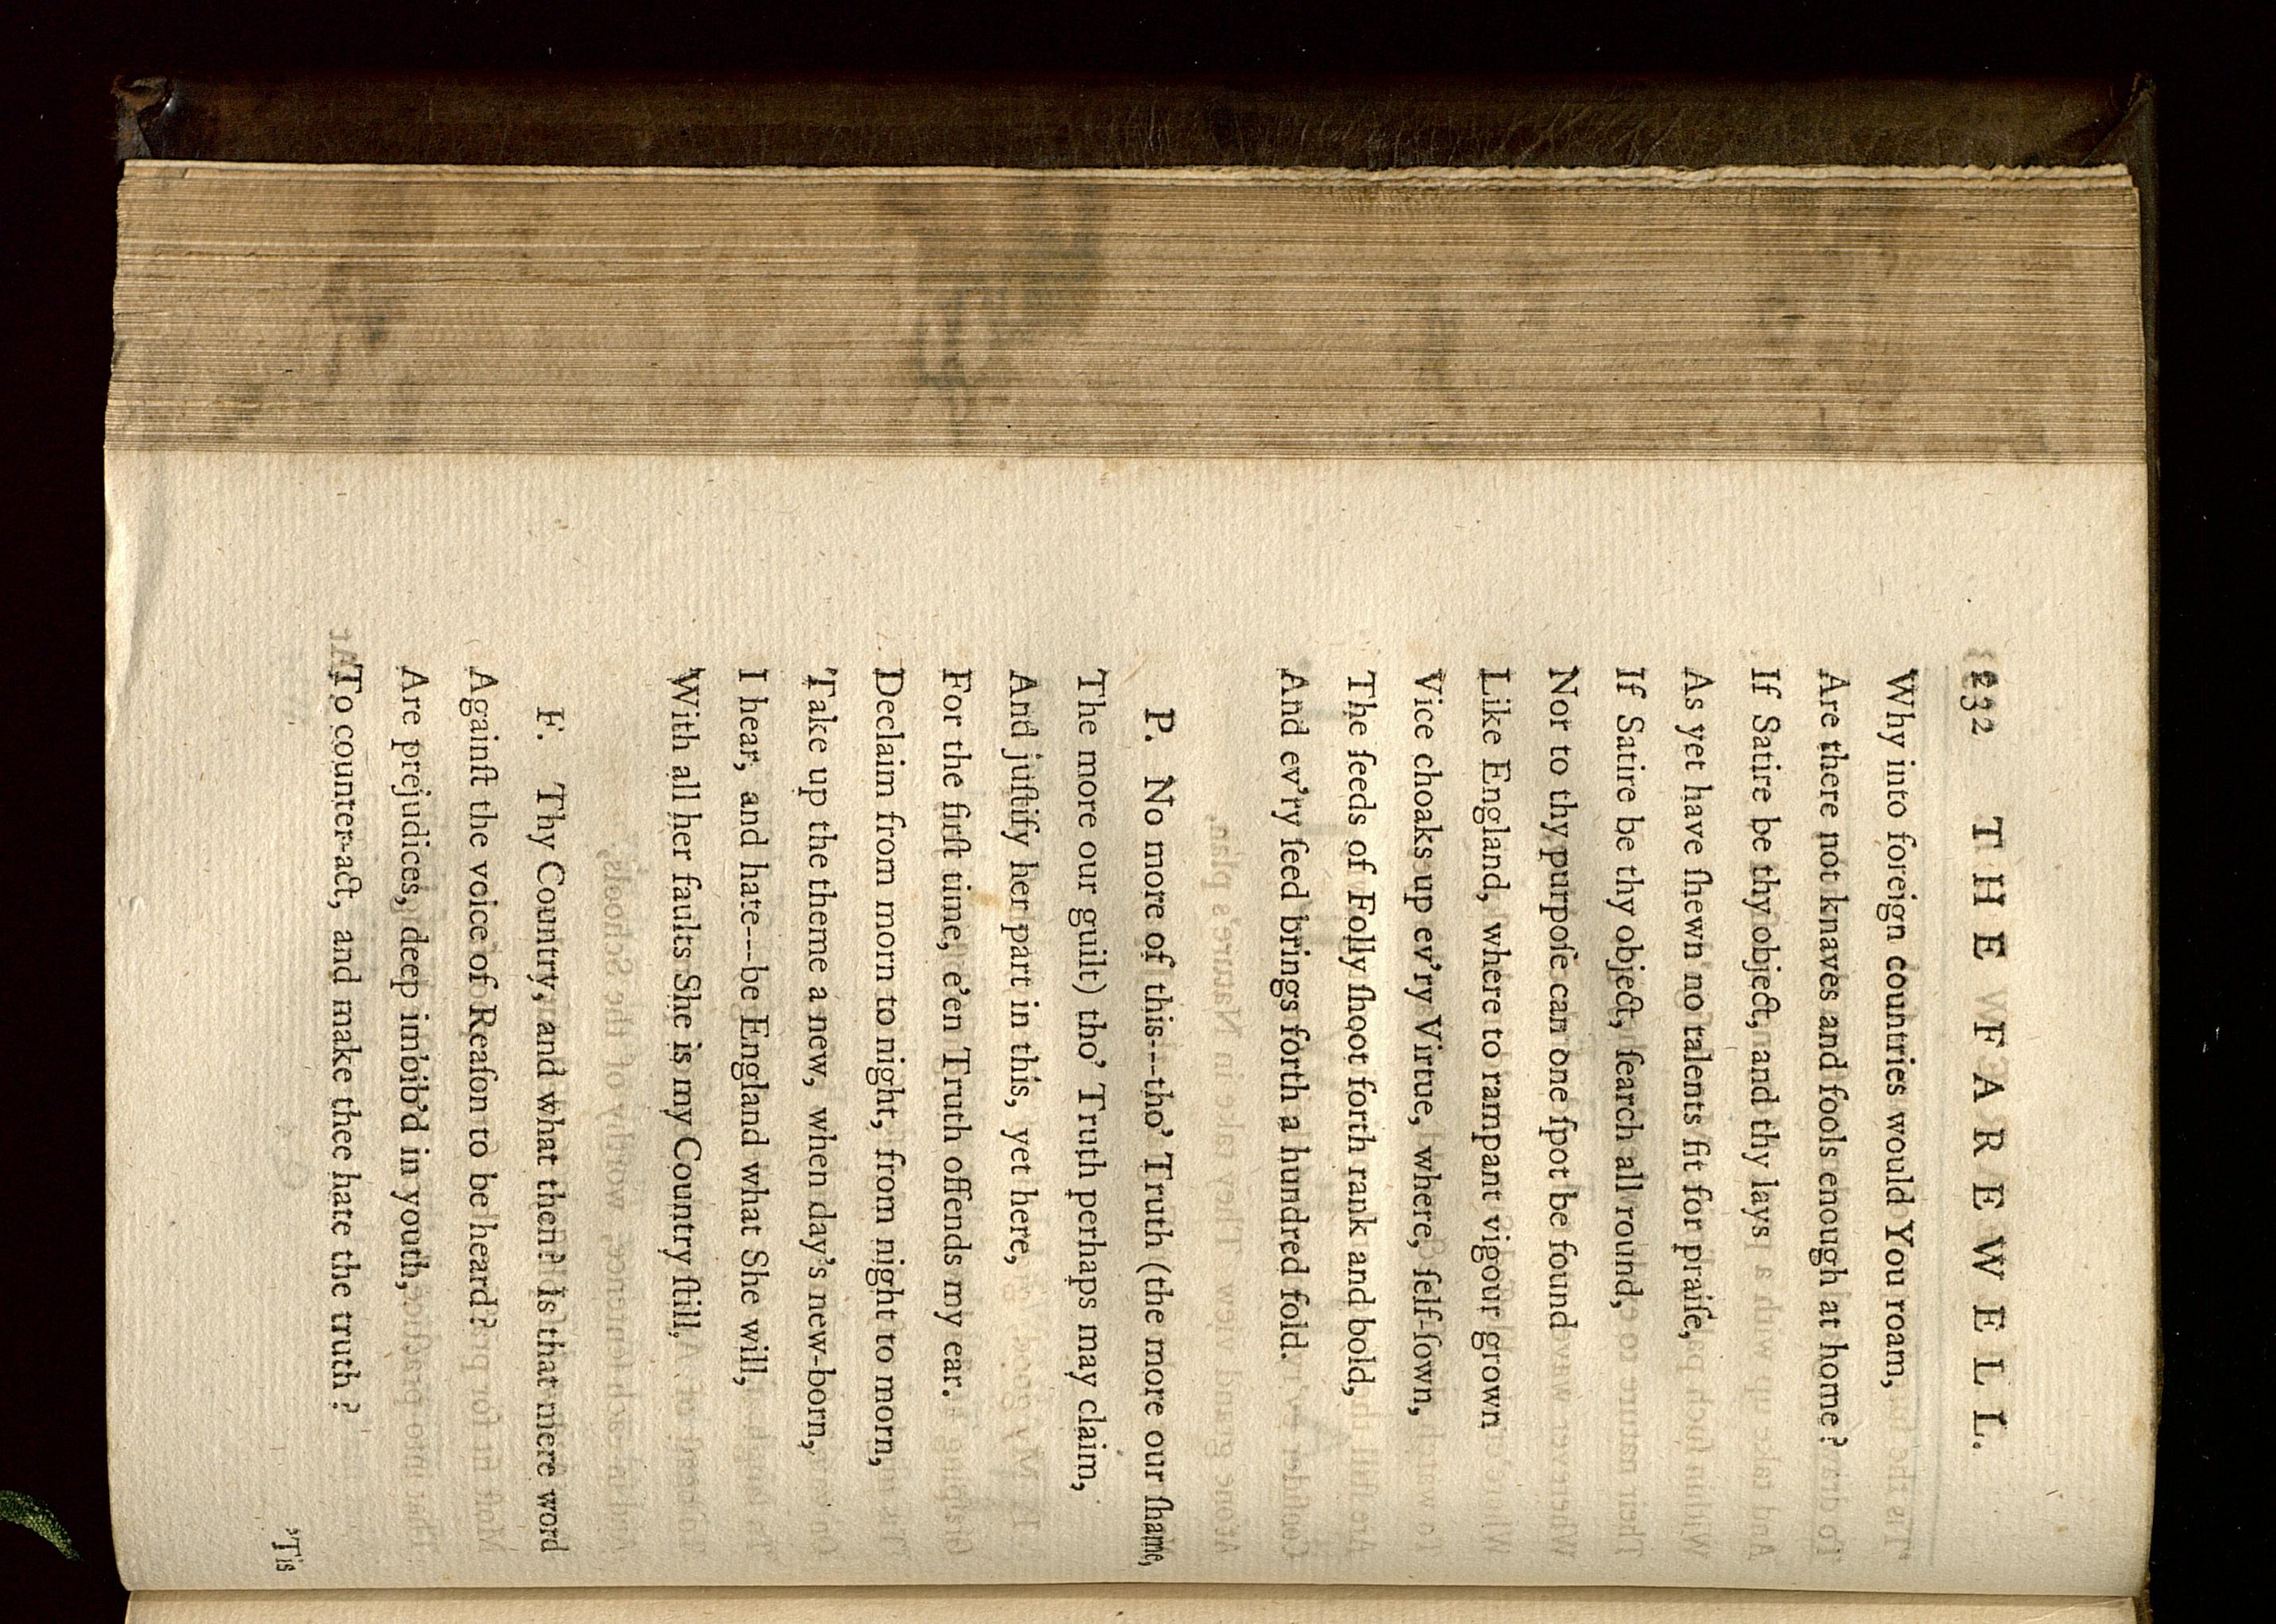 232 THE FAREWELL.
Why into foreign countries would You roam,
Are there not knaves and fools enough at home?
If Satire be thy object, and thy lays
As yet have ſhewn no talents fit for praiſe,
If Satire be thy object, ſearch all round,
Nor to thy purpoſe can one ſpot be found
Like England, where to rampant vigour grown
Vice choaks up ev'ry Virtue, where, ſelf-ſown,
The ſeeds of Folly ſhoot forth rank and bold,
And ev'ry ſeed brings forth a hundred fold.
P. No more of this---tho' Truth (the more our ſhame,
The more our guilt) tho' Truth perhaps may claim,
And juſtify her part in this, yet here,
For the firſt time, e'en Truth offends my ear.
Declaim from morn to night, from night to morn,
Take up the theme a new, when day's new-born,
I hear, and hate---be England what She will,
With all her faults She is my Country ſtill.
F. Thy Country, and what then? Is that mere word
Againſt the voice of Reaſon to be heard?
Are prejudices, deep imbib'd in youth,
To counter-act, and make thee hate the truth?
'Tis